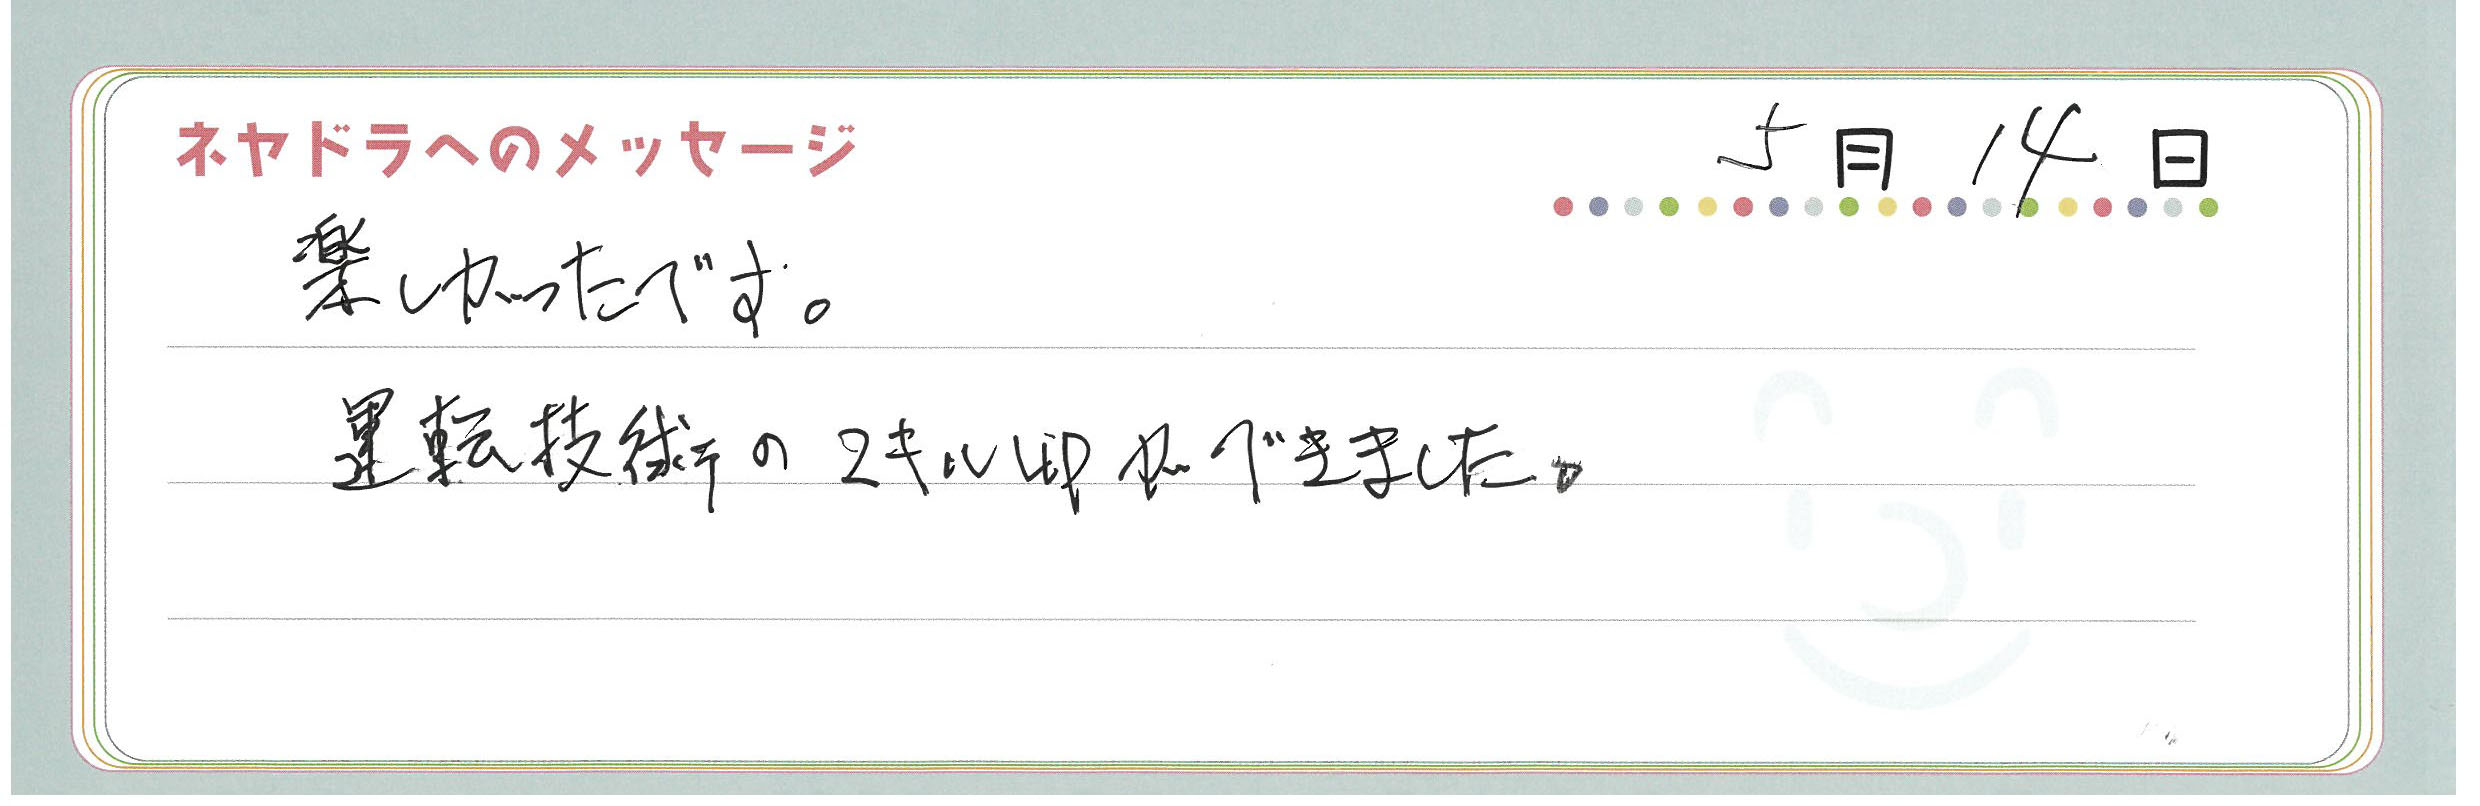 ネヤドラへのメッセージ
5月14日
楽しかったです。
運転技術のスキルUPができました。